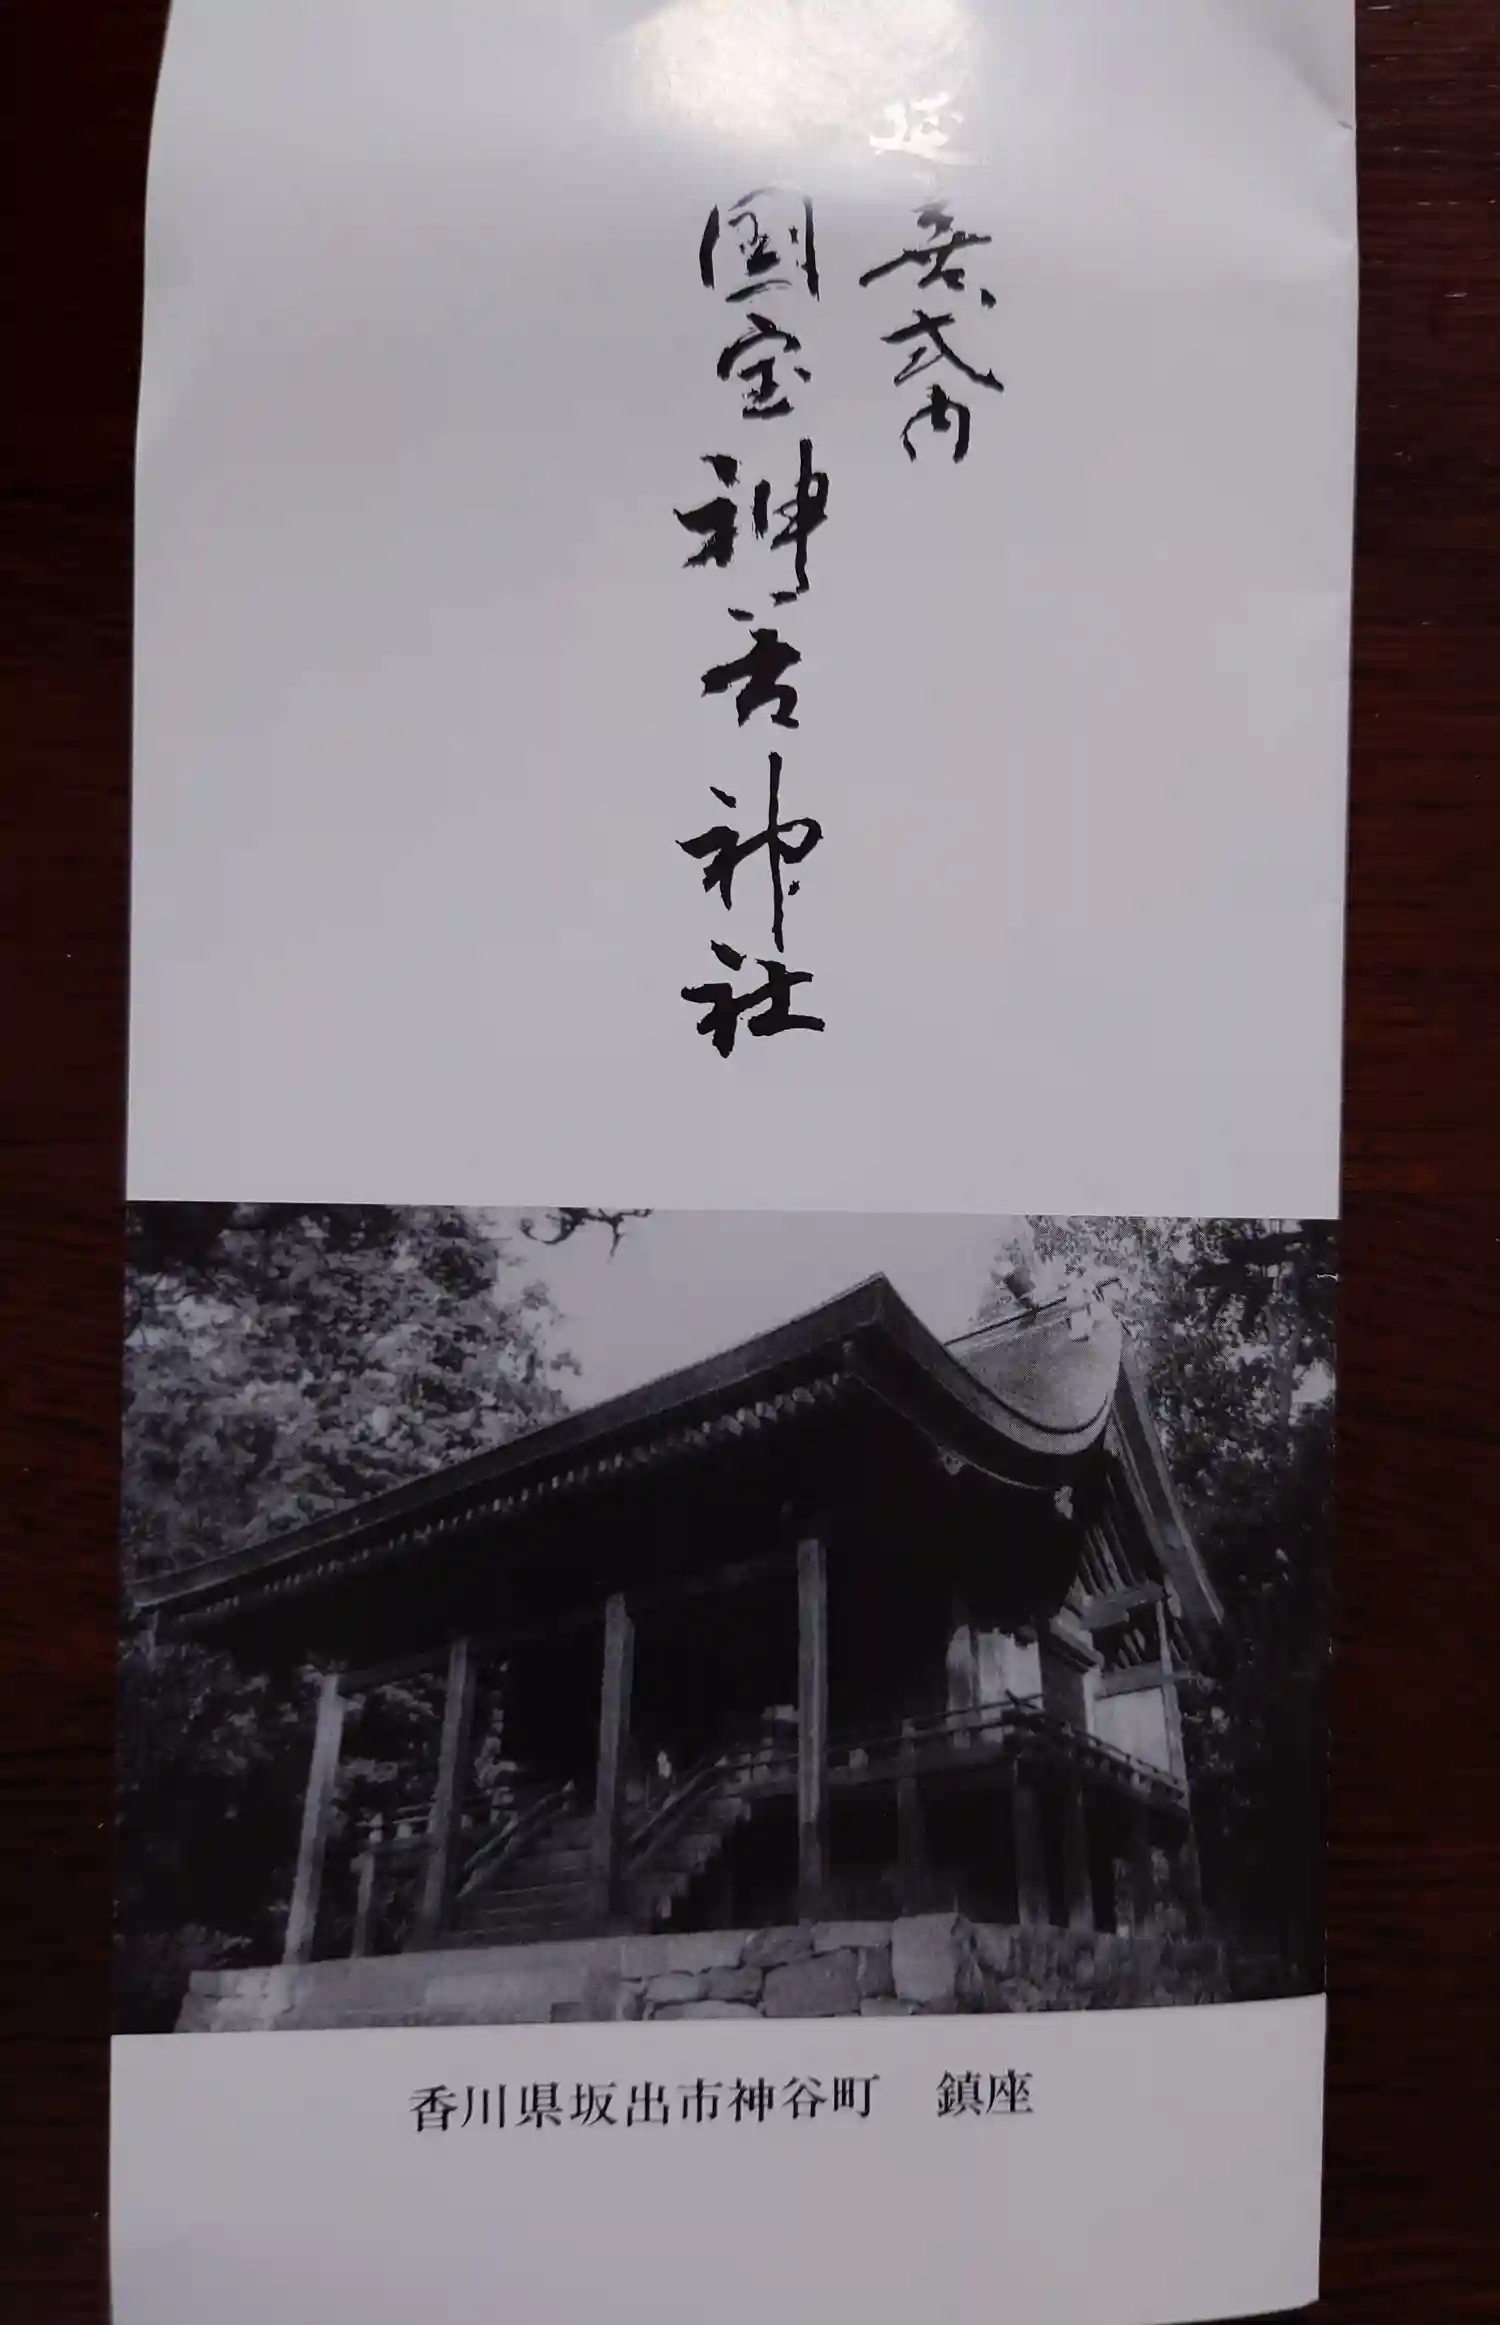 延喜式内
国宝神谷神社
香川県坂出市神谷町　鎮座